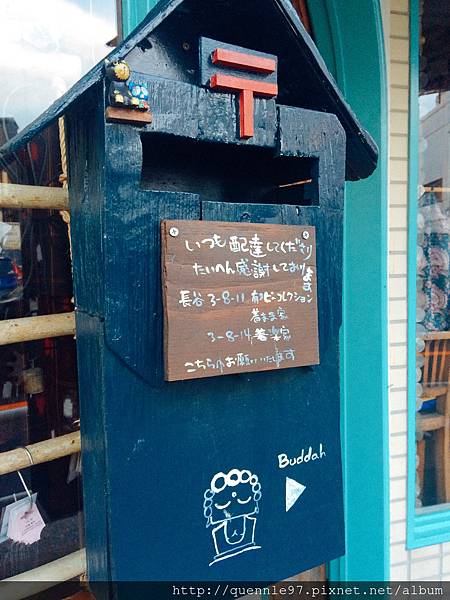 〒
いつも配達してくださり
たいへん感謝しております
長谷 3-8-11, かビーコレクション
着まま家
3-8-14, 着楽家
こちらにお願いいたします
Buddah
http://quennle97.pixnet.net/album